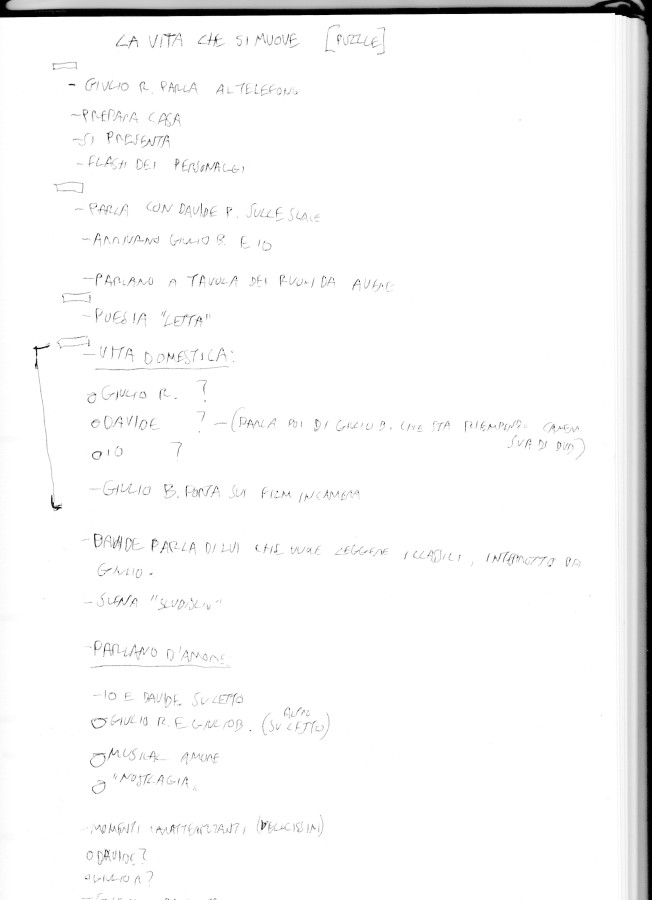 LA VITA CHE SI MUOVE [PUZZLE]
- GIULIO R. PARLA AL TELEFONO
- PREPARA CASA
- SI PRESENTA
- FLASH DEI PERSONAGGI
- PARLA CON DAVIDE P. SULLE SCALE
- ARRIVANO GIULIO B. E IO
- PARLANO A TAVOLA DEI RUOLI DA AVERE
- POESIA "LETTA"
- VITA DOMESTICA:
O GIULIO R. ?
O DAVIDE ? - (PARLA POI DI GIULIO B. CHE STA RIEMPENDO CAMERA
SUA DI DVD)
O IO ?
- GIULIO B. PORTA SUI FILM IN CAMERA
- DAVIDE PARLA DI LUI CHE VUOLE LEGGERE I CLASSICI, INTERROTTO DA
GIULIO.
- SCENA
- PARLANO D'AMORE
- IO E DAVIDE SU LETTO
ALTRO
O GIULIO R. E GIULIO B. (SU LETTO)
O MUSICAL AMORE
O "NOSTALGIA"
- MOMENTI CARATTERIZZANTI (VELOCISSIMI)
O DAVIDE?
O GIULIO R?